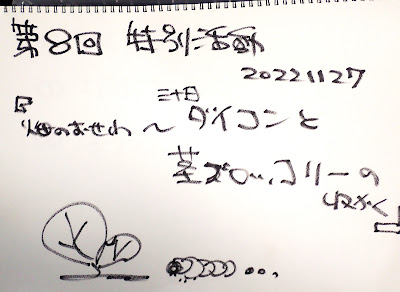 第8回 特別活動
20221127
『畑のおせわ ~ 三十日ダイコンと
茎ブロッコリーの
収かく』